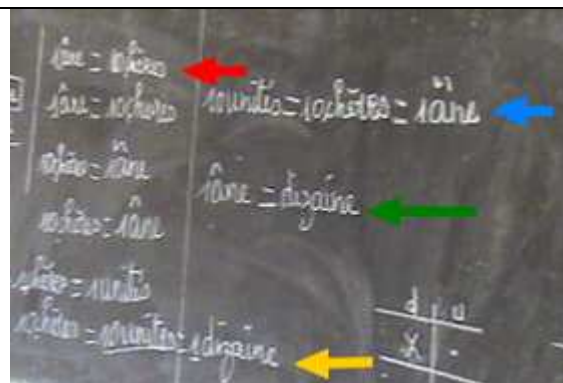 1âne = 10chères
1âne = 10chères
10chères = 1âne
10chères = 1âne
1chère = 1unités
10chères = 10unités = 1dizaine
10unités = 10chères = 1âne
1âne = dizaine
d u
X .